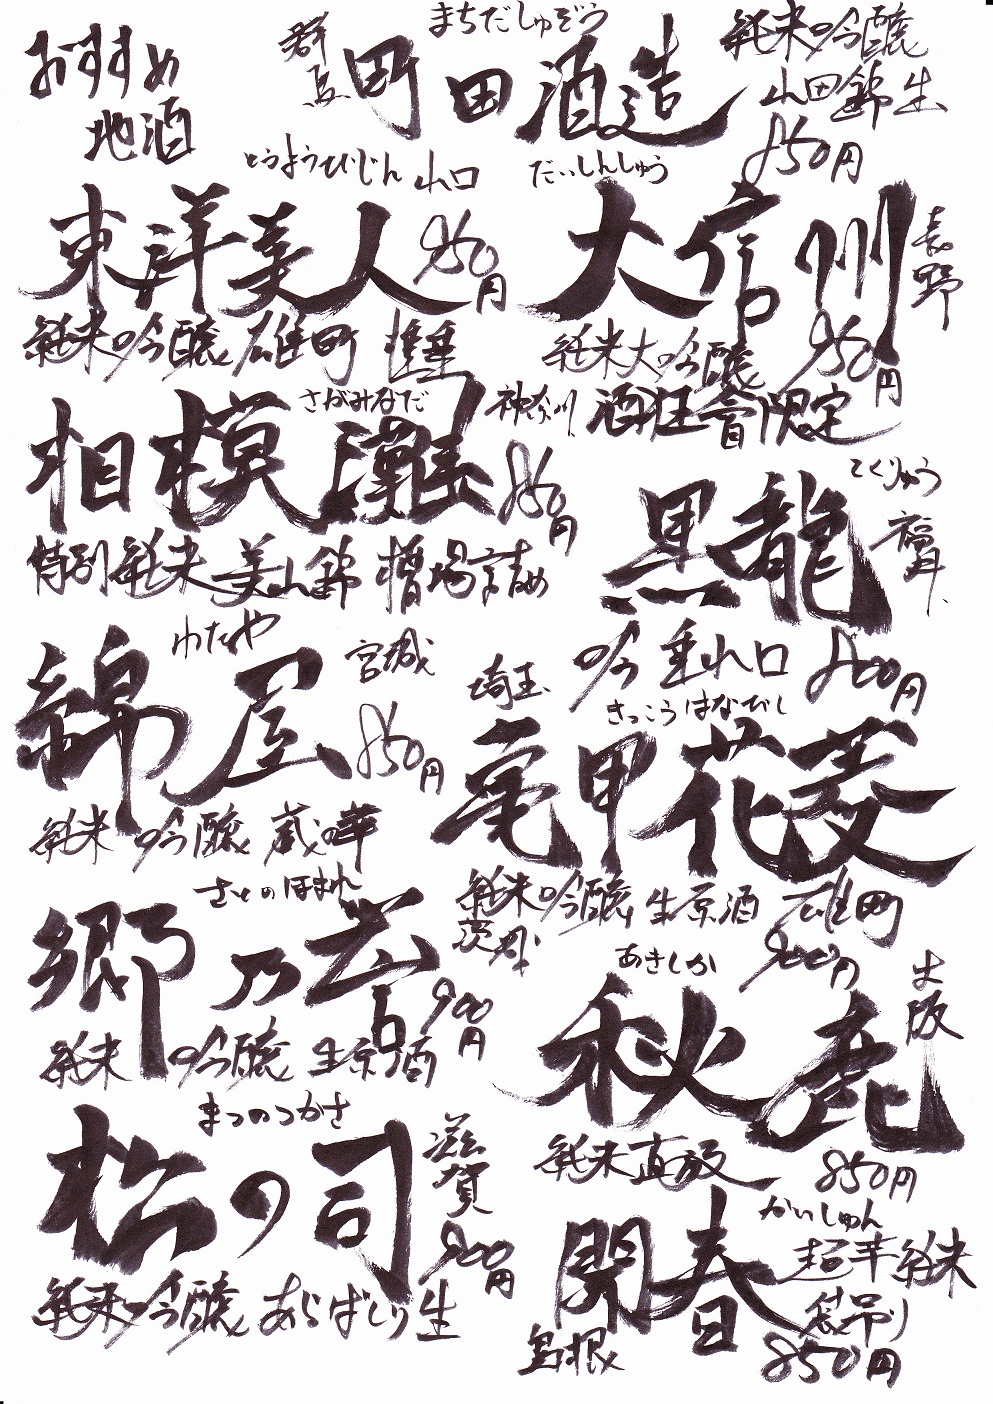 おすすめ
地酒
群馬
まちだしゅぞう
町田酒造
純米吟醸
山田錦 生
850円
とうようびじん 山口
東洋美人
850円
純米吟醸 雄町
だいしんしゅう
大信州
長野
純米大吟醸
950円
酒狂會限定
さがみなだ
相模灘
神奈川
850円
特別純米 美山錦 槽場詰め
こくりゅう
黒龍
福井
吟 垂れ口
800円
わたや
綿屋
宮城
850円
純米 吟醸 蔵の華
埼玉
きっこうはなびし
亀甲花菱
純米吟醸 生原酒 雄町
900円
さとのほまれ
茨城
郷乃誉
900円
純米 吟醸 生原酒
あきしか
秋鹿
大阪
純米直汲
850円
まつのつかさ
松の司
滋賀
900円
純米吟醸 あらばしり 生
かいしゅん
開春
超辛純米
袋吊り
島根
850円